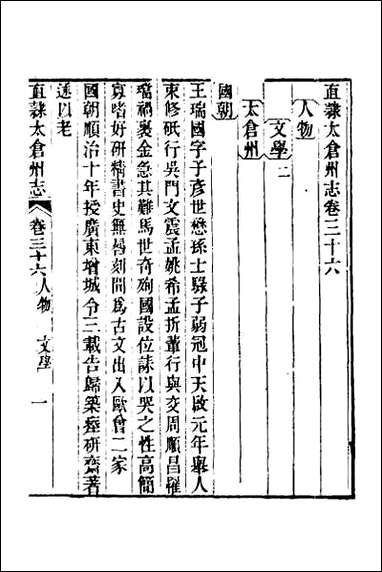 直隸太倉州志卷三十六
人物
文學二
太倉州
國朝
王瑞國字子彥世懋孫士騄子弱冠中天啟元年舉人
束修砥行吳門文震孟姚希孟折輩行與交周順昌罹
璫禍裹金急其難馬世奇殉國設位誄以哭之性高簡
寡嗜好研精書史無晷刻間爲古文出入歐曾二家
國朝順治十年授廣東增城令三載告歸築瘞研齋著
述以老
直隸太倉州志
卷三十六人物 文學 一